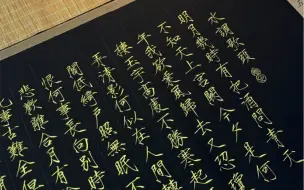 水調歌頭
明月幾時有把酒問青天
不知天上宮闕今夕是何
年我欲乘風歸去又恐瓊
樓玉宇高處不勝寒起
弄清影何似在人間
閣低綺戶照無眠不
恨何事長向別時
悲歡離合月有
事古難全但